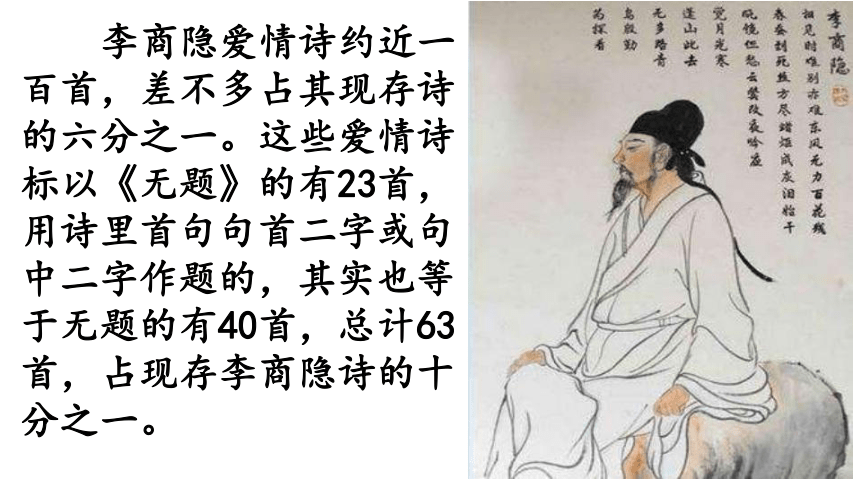 李商隐爱情诗约近一
百首，差不多占其现存诗
的六分之一。这些爱情诗
标以《无题》的有23首，
用诗里首句句首二字或句
中二字作题的，其实也等
于无题的有40首，总计63
首，占现存李商隐诗的十
分之一。
李商隐
相见时难别亦难东风无力百花残
春蚕到死丝方尽蜡炬成灰泪始干
晓镜但愁云鬓改夜吟应
觉月光寒
蓬山此去
无多路青
鸟殷勤
为探看